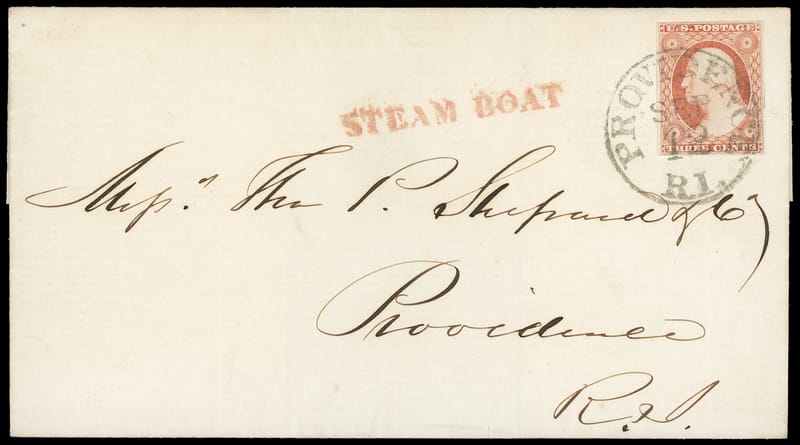 U.S. POSTAGE
THREE CENTS
PROVIDENCE
SEP
12
R.I.
STEAM BOAT
Mess.rs Tho P. Shepard & Co
Providence
R.I.